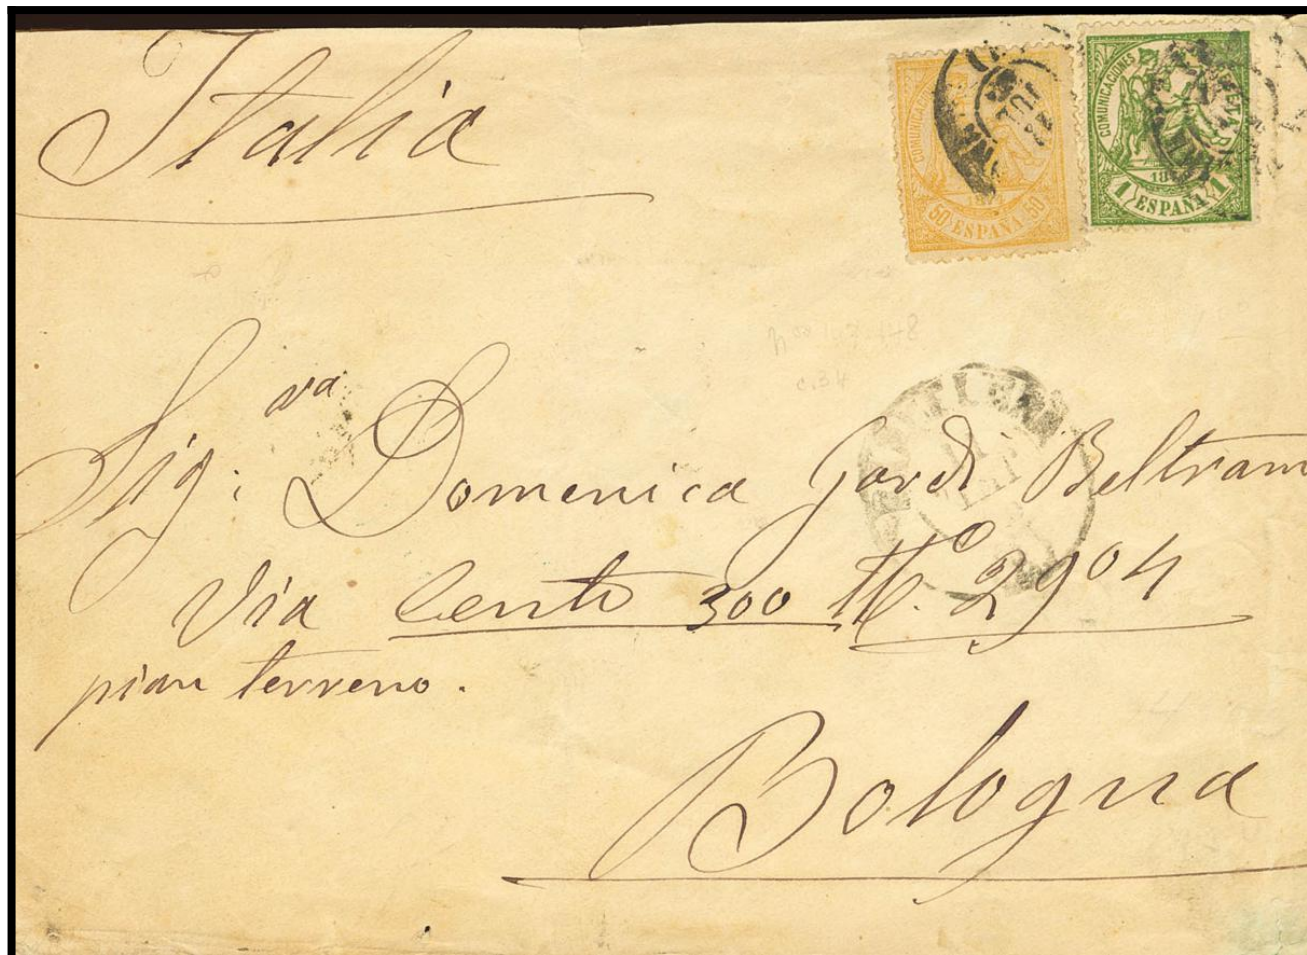 Italia
COMUNICACIONES
50 ESPAÑA 50
COMUNICACIONES
1 ESPAÑA 1
JUL
Sig:ra Domenica Gardi Beltram
Via Cento 300 N.º 2904
pian terreno.
Bologna